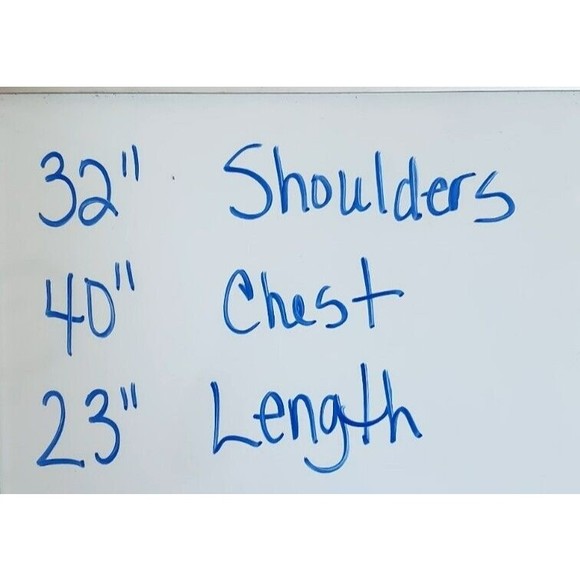 32" Shoulders
40" Chest
23" Length